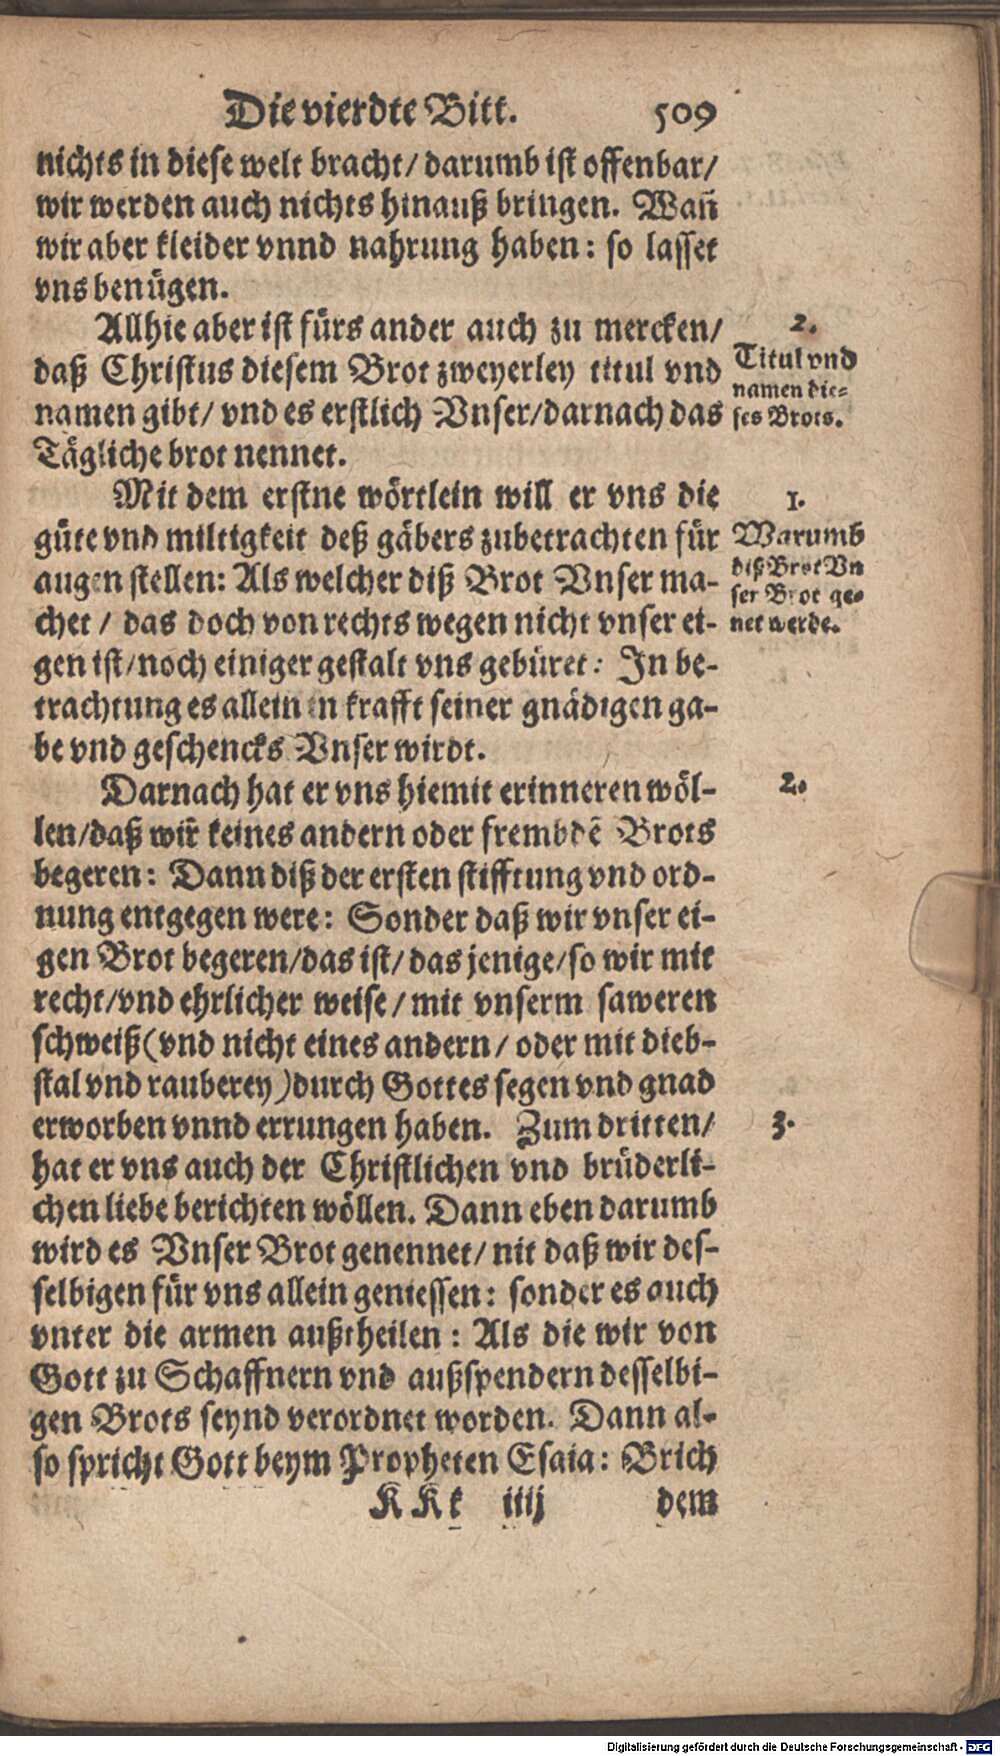 Die vierdte Bitt. 509
nichts in diese welt bracht/ darumb ist offenbar/
wir werden auch nichts hinauß bringen. Wañ
wir aber kleider vnnd nahrung haben: so lasset
vns benügen.
Allhie aber ist fürs ander auch zu mercken/
daß Christus diesem Brot zweyerley titul vnd
namen gibt/ vnd es erstlich Vnser/darnach das
Tägliche brot nennet.
2.
Titul vnd
namen die-
ses Brots.
Mit dem erstne wörtlein will er vns die
güte vnd miltigkeit deß gäbers zubetrachten für
augen stellen: Als welcher diß Brot Vnser ma-
chet / das doch von rechts wegen nicht vnser ei-
gen ist/noch einiger gestalt vns gebüret: In be-
trachtung es allein in krafft seiner gnädigen ga-
be vnd geschencks Vnser wirdt.
1.
Warumb
diß Brot Vn
ser Brot ge-
net werde.
Darnach hat er vns hiemit erinneren wöl-
len/daß wir̃ keines andern oder frembdẽ Brots
begeren: Dann diß der ersten stifftung vnd ord-
nung entgegen were: Sonder daß wir vnser ei-
gen Brot begeren/das ist/ das jenige/so wir mit
recht/vnd ehrlicher weise/ mit vnserm saweren
schweiß(vnd nicht eines andern/ oder mit dieb-
stal vnd rauberey)durch Gottes segen vnd gnad
erworben vnnd errungen haben. Zum dritten/
hat er vns auch der Christlichen vnd brüderli-
chen liebe berichten wöllen. Dann eben darumb
wird es Vnser Brot genennet/ nit daß wir des-
selbigen für vns allein geniessen: sonder es auch
vnter die armen außtheilen: Als die wir von
Gott zu Schaffnern vnd außspendern desselbi-
gen Brots seynd verordnet worden. Dann al-
so spricht Gott beym Propheten Esaia: Brich
2.
3.
KKk iiij dem
Digitalisierung gefördert durch die Deutsche Forschungsgemeinschaft - DFG